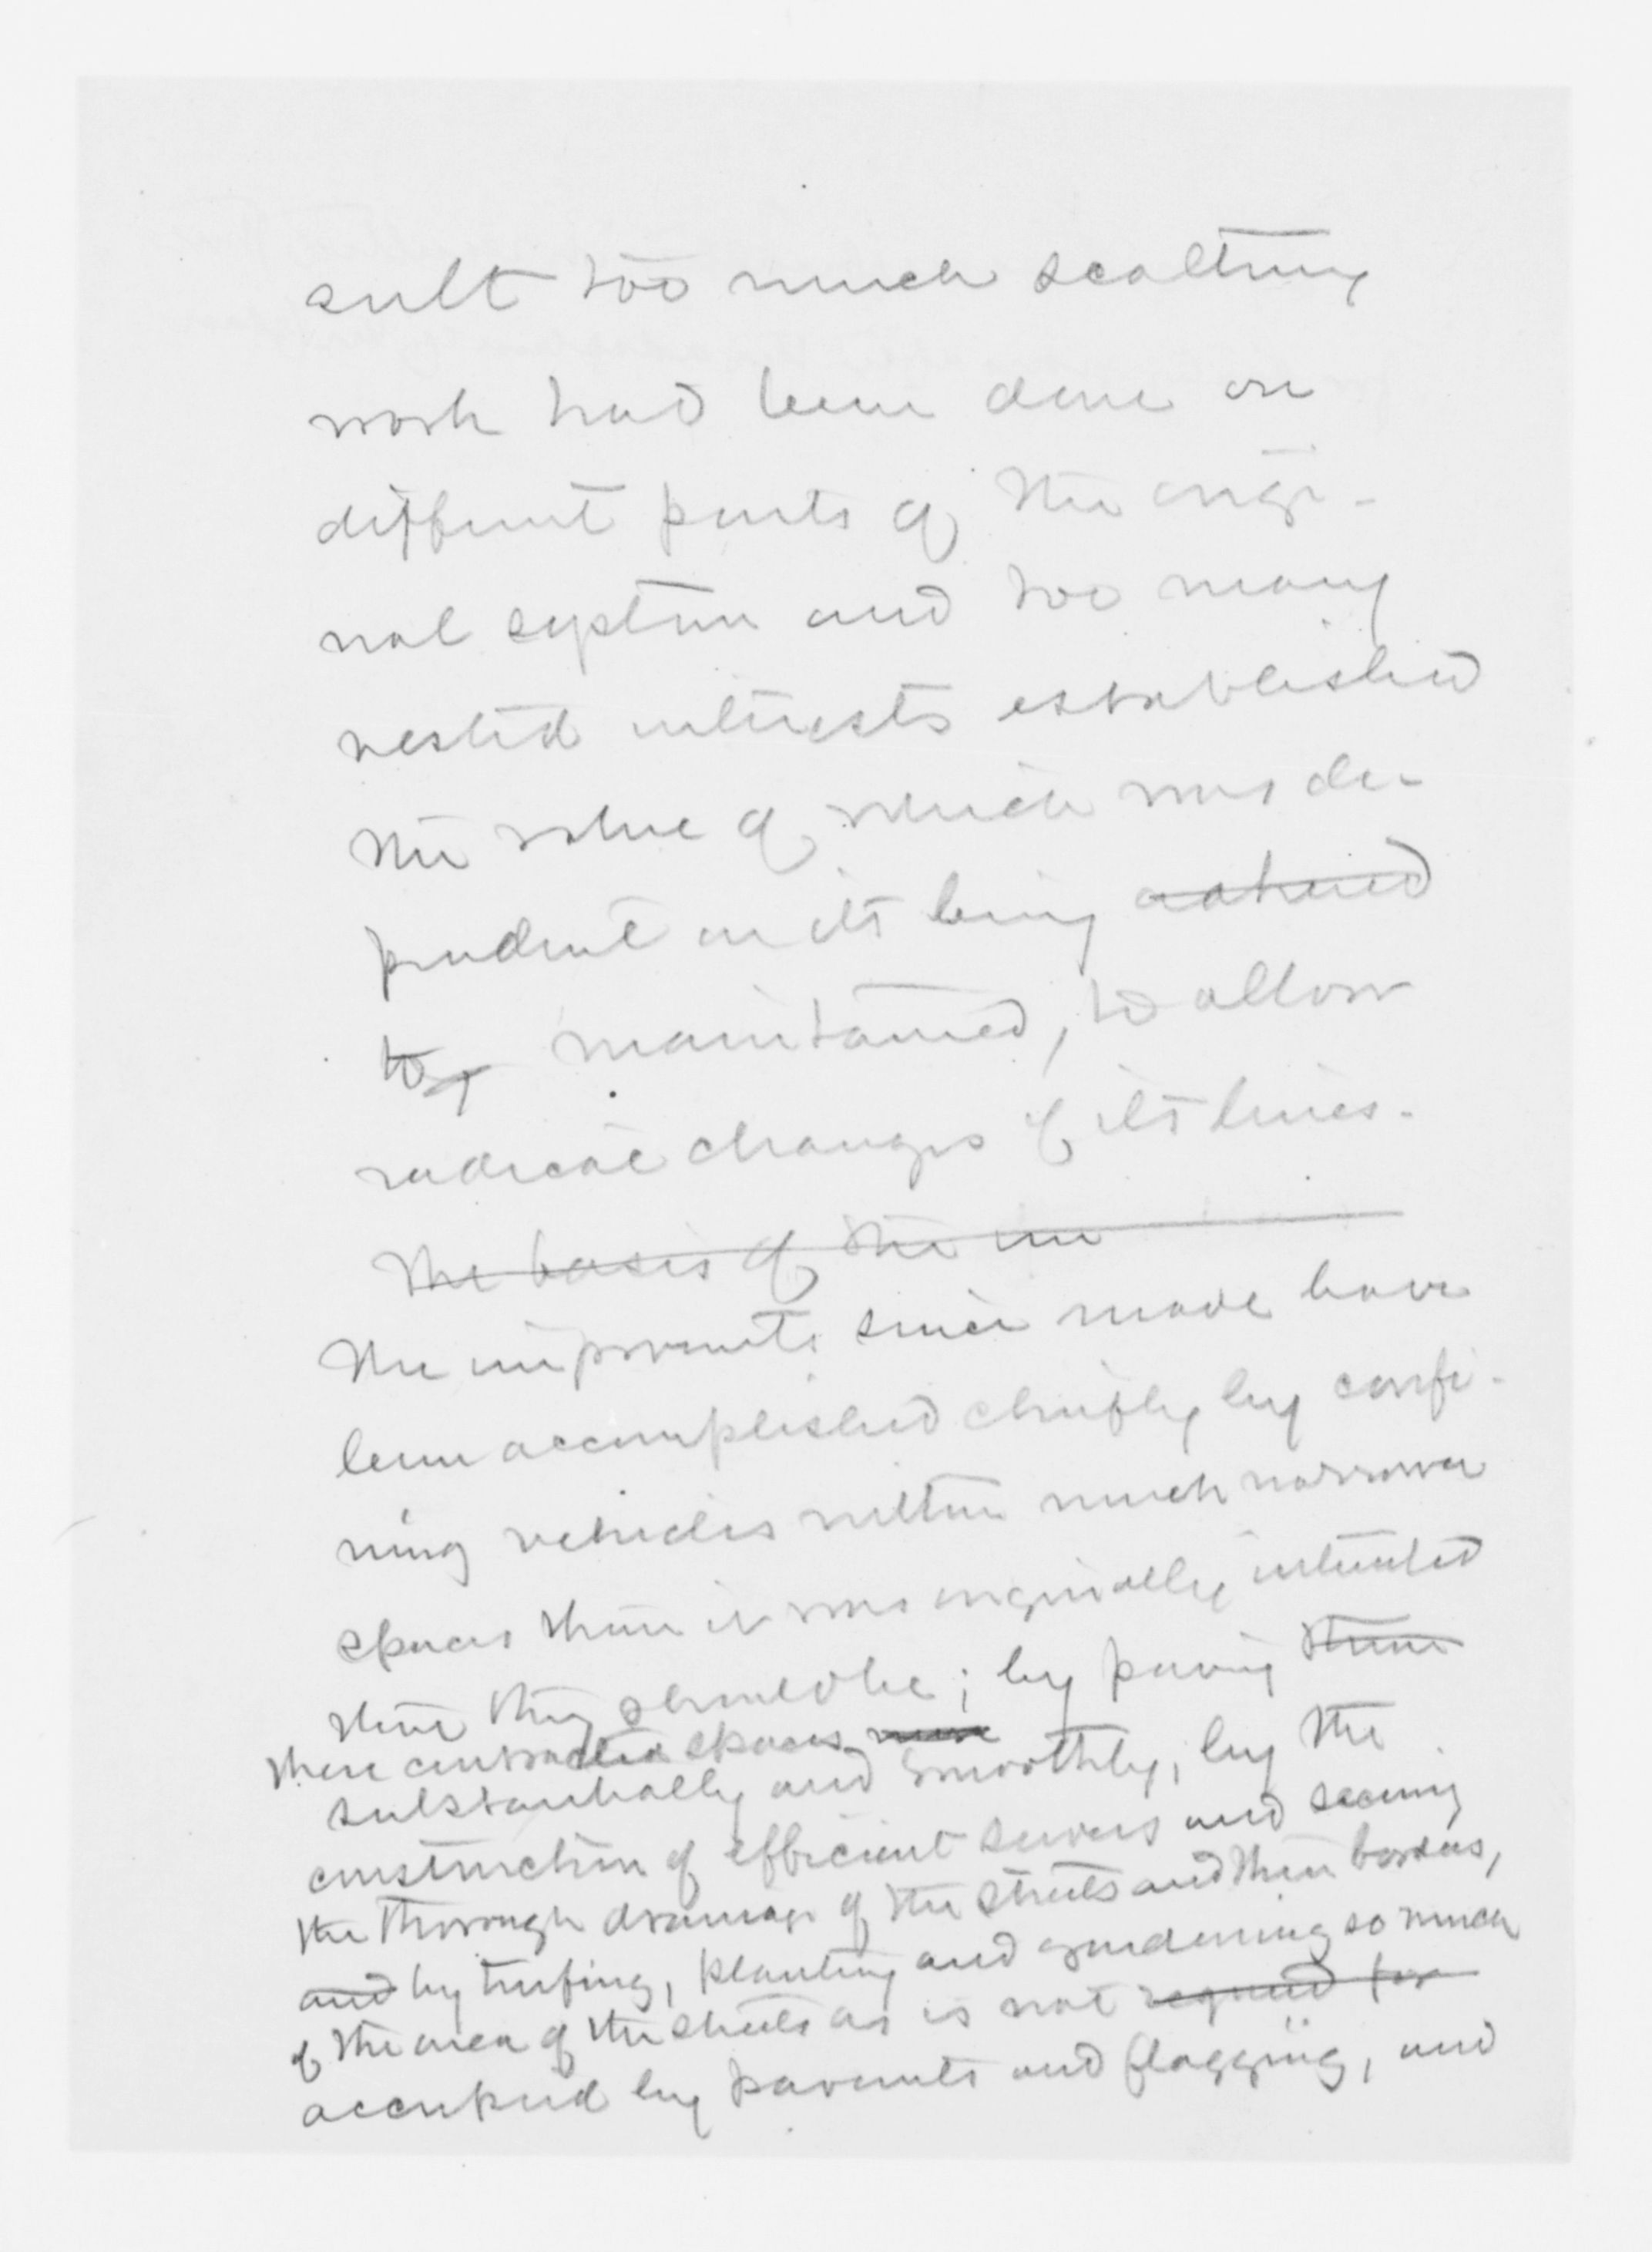 sult too much scattering
work had been done on
different parts of the origi-
nal system and too many
vested interests established
the value of which was de-
pendent on its being adhered
to maintained, to allow
radical changes of its lines.
The basis of the im
The improvements since made have
been accomplished chiefly by confi-
ning vehicles within much narrower
spaces than it was originally intended
that they should be; by paving them
these contracted spaces more
substantially and smoothly, by the
construction of efficient sewers and securing
the thorough drainage of the streets and their borders,
and by turfing, planting and gardening so much
of the area of the streets as is not required for
occupied by pavements and flagging, and